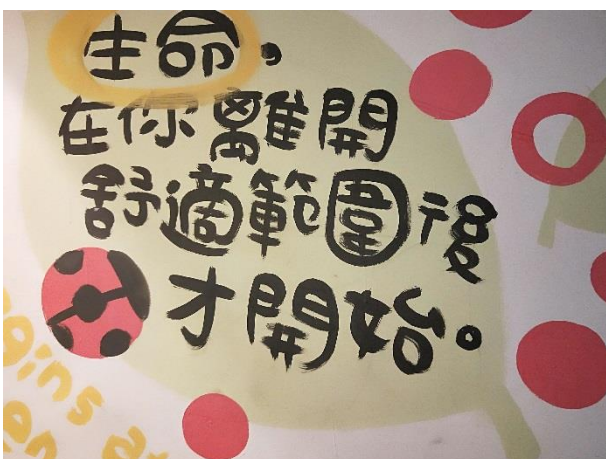 生命，
在你離開
舒適範圍後
才開始。
gins at